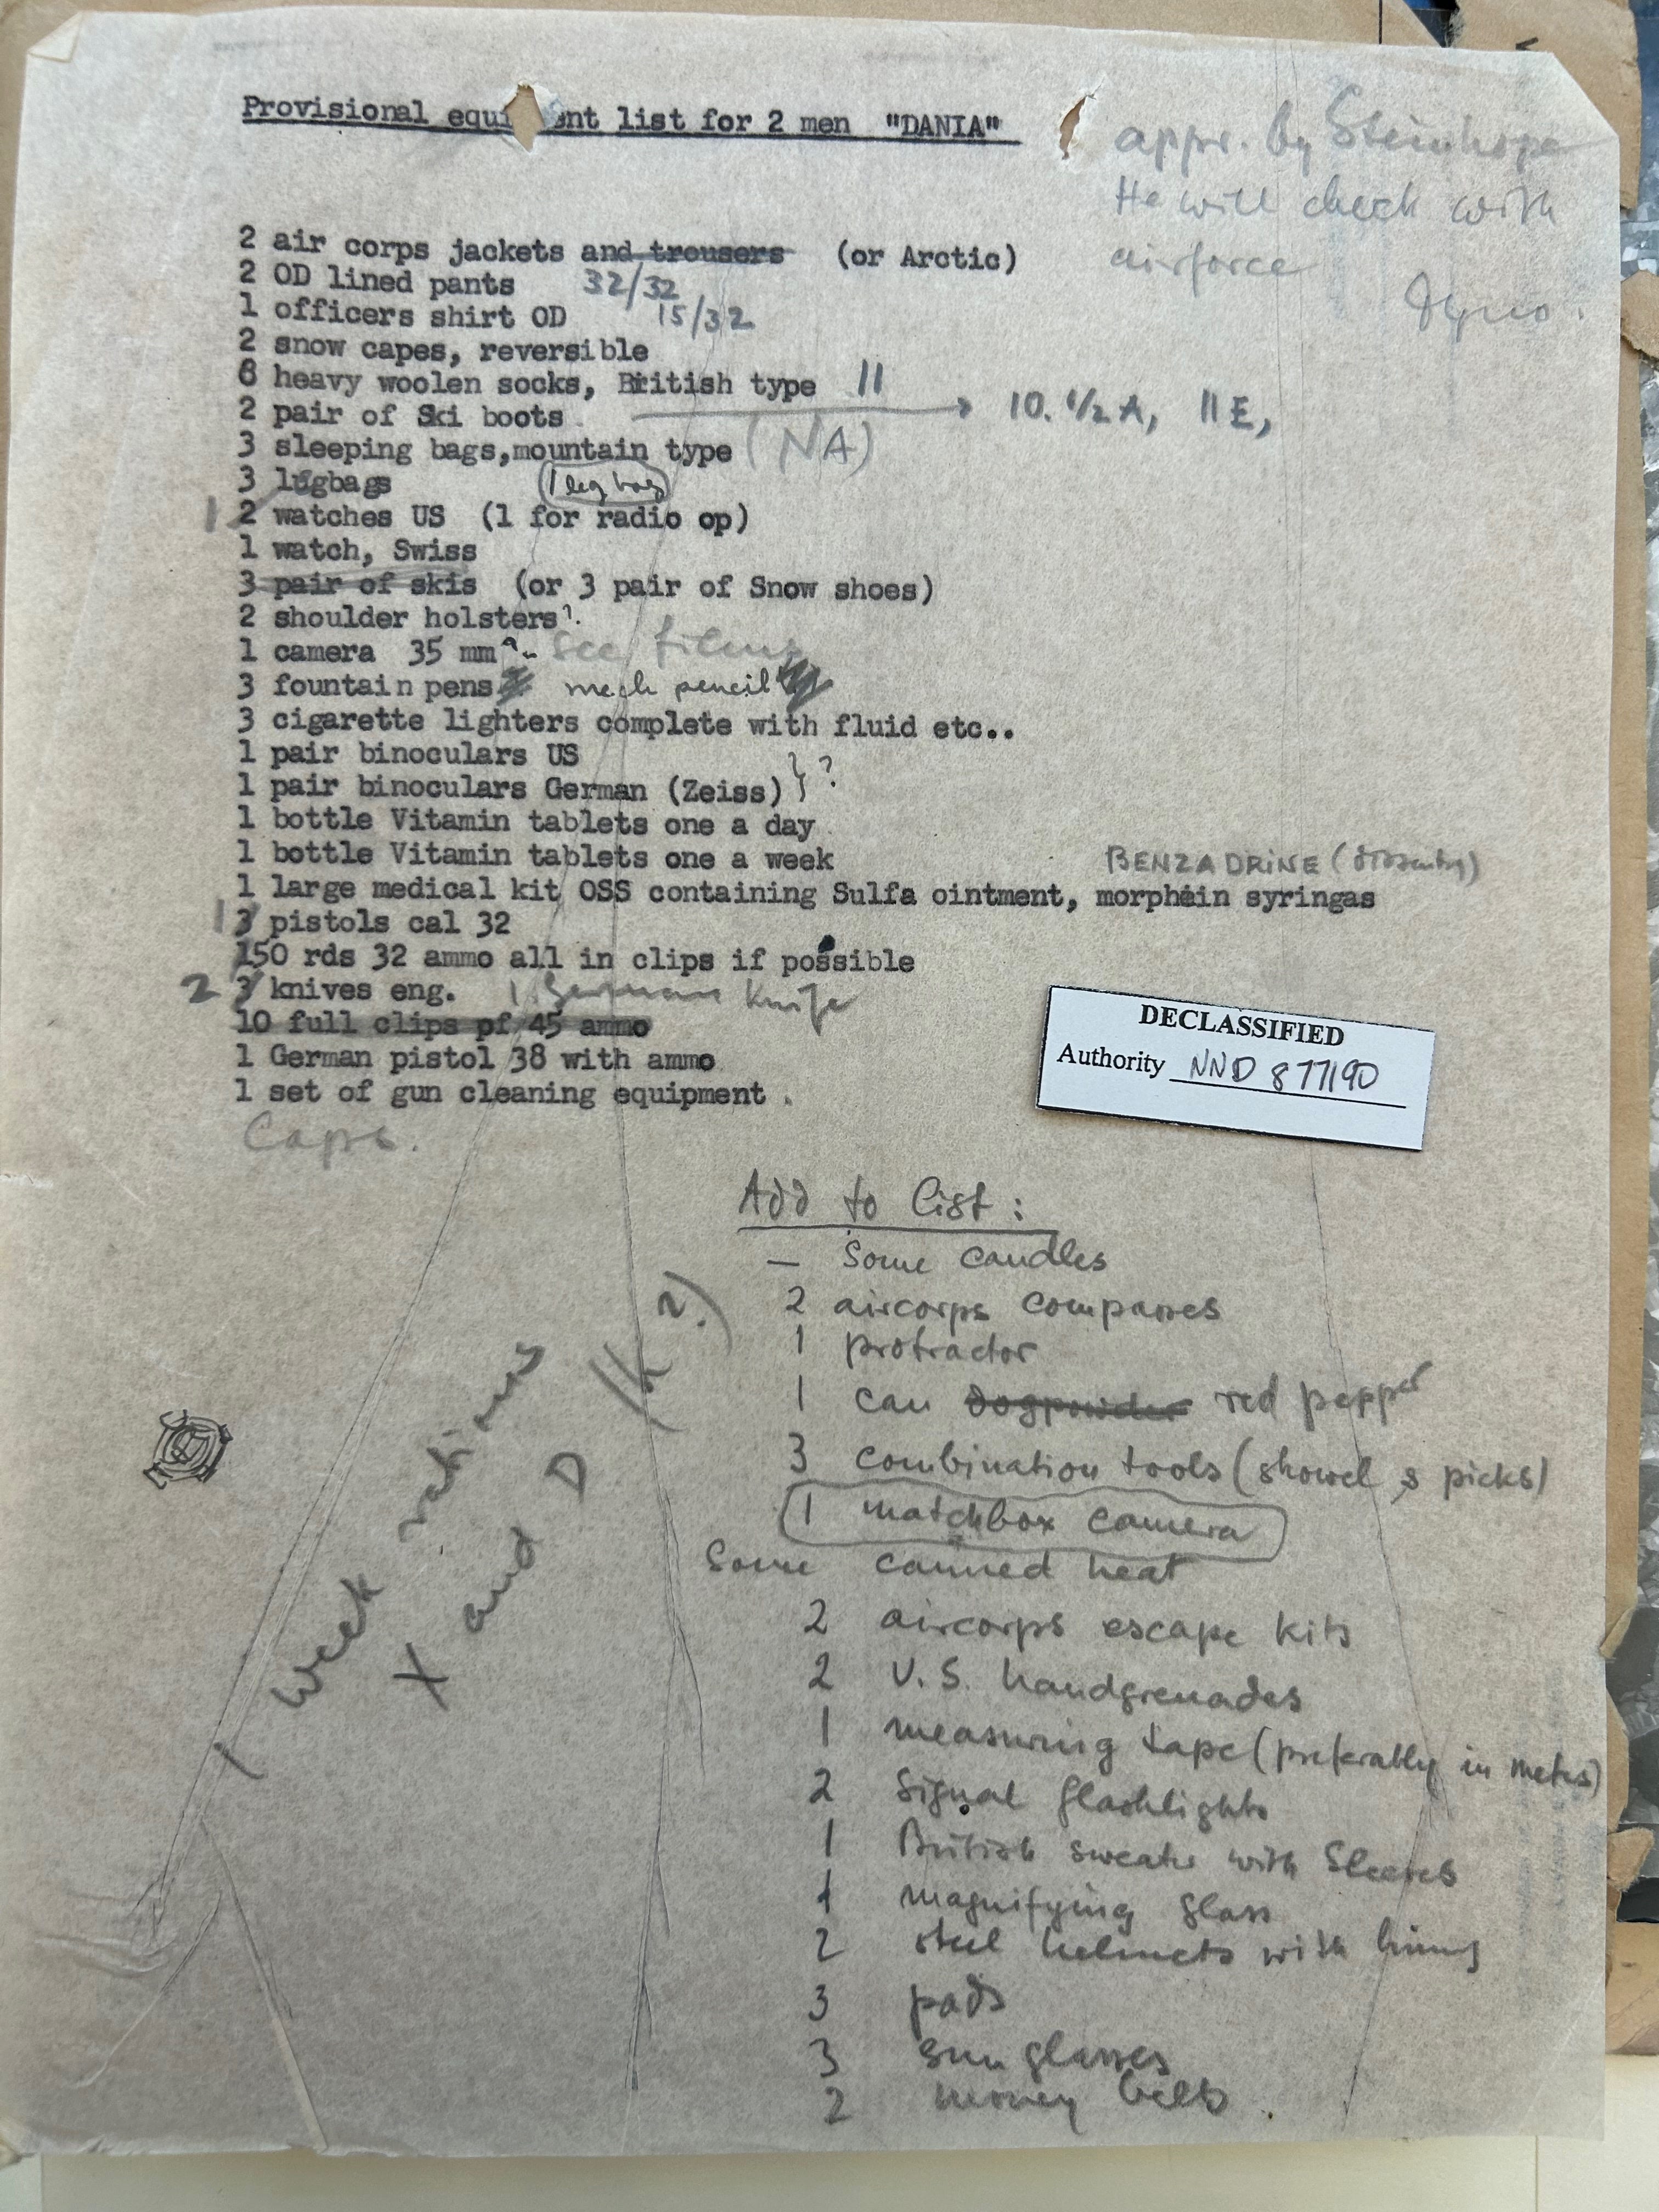 Provisional equi ent list for 2 men "DANIA"
appr. by
He will check with
airforce
2 air corps jackets and trousers (or Arctic)
2 OD lined pants 32/32
1 officers shirt OD 15/32
2 snow capes, reversible
6 heavy woolen socks, British type 11
2 pair of Ski boots 10. 1/2 A, 11 E,
3 sleeping bags,mountain type (NA)
3 legbags 1 leg bag
1 2 watches US (1 for radio op)
1 watch, Swiss
3 pair of skis (or 3 pair of Snow shoes)
2 shoulder holsters?
1 camera 35 mm ? - See films
3 fountain pens mech pencil
3 cigarette lighters complete with fluid etc..
1 pair binoculars US
1 pair binoculars German (Zeiss) } ?
1 bottle Vitamin tablets one a day
1 bottle Vitamin tablets one a week
BENZADRINE
1 large medical kit OSS containing Sulfa ointment, morphein syringas
1 3 pistols cal 32
150 rds 32 ammo all in clips if possible
2 3 knives eng. 1 German Knife
10 full clips pf 45 ammo
1 German pistol 38 with ammo
1 set of gun cleaning equipment .
Caps.
DECLASSIFIED
Authority NND 877190
Add to list:
— Some candles
2 aircorps compasses
1 protractor
1 can dogpowder red pepper
3 combination tools (showel & picks)
1 matchbox camera
Some canned heat
2 aircorps escape kits
2 U.S. handgrenades
1 measuring tape (preferably in meters)
2 Signal flashlights
1 British sweater with Sleeves
1 magnifying glass
2 steel helmets with lining
3 pads
3 sun glasses
2 money belts
1 week rations
X and D (K ?)